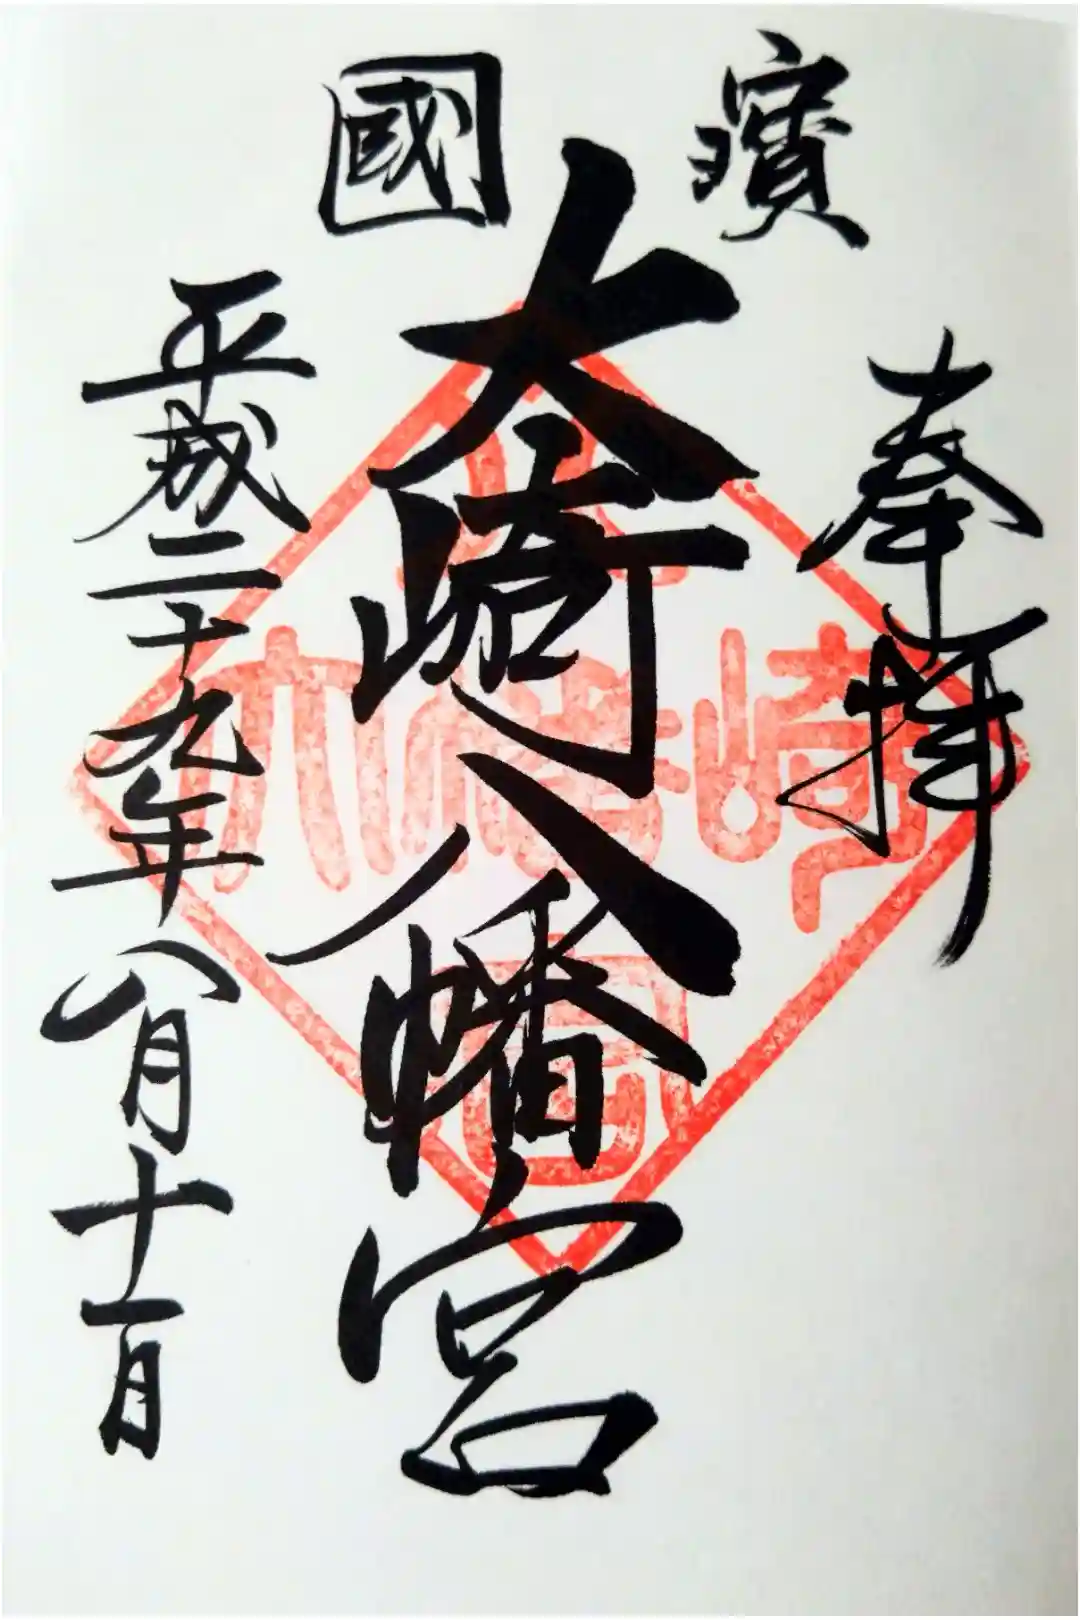 國寶
奉拝
大崎八幡宮
平成二十九年八月十一日
大崎八幡宮